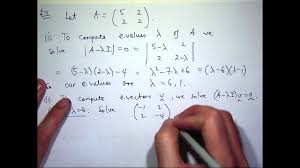 Ex Let A = (5 2
2 2)
(i) To compute e.values λ of A we
solve |A-λI|=0 = |5-λ 2
2 2-λ|
= (5-λ)(2-λ)-4 = λ²-7λ+6 = (λ-6)(λ-1)
So our e.values are λ=6, 1.
To compute e.vectors v, we solve (A-λI)v=0
λ=6: Solve (-1 2
2 -4)